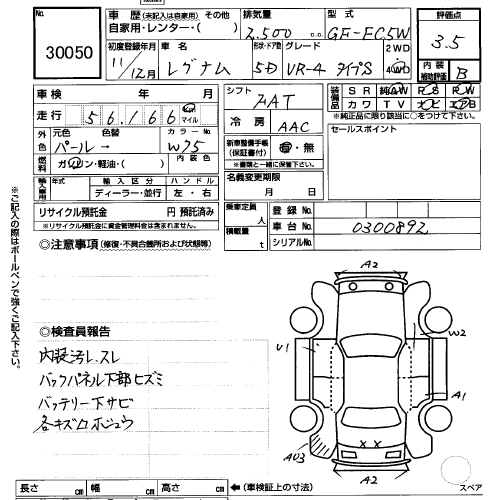 No.
30050
車 歴 (未記入は自家用) その他
自家用・レンター・( )
排気量
2,500 c.c.
型 式
GF-EC5W
評価点
3.5
初度登録年月
11/12月
車 名
レグナム
形状・ドア数
5D
グレード
VR-4 タイプS
2WD
4WD
内 装
補助評価
B
車検 年 月
走行 56,166 km マイル
シフト
FAT
冷 房
AAC
装備品
S R AW P S P W
カ ワ T V
※純正品に限り該当に○をつけて下さい。
外色
元色 色替
パール →
カラー No.
W75
燃料
ガソリン・軽油・( )
内 装 色
新車整備手帳
(保証書付)
有・無
※書類と一緒に保管下さい。
セールスポイント
輸入車用
年式
輸 入 区 分
ディーラー・並行
ハ ン ド ル
左・右
名義変更期限
月 日
リサイクル預託金 円 預託済み
※リサイクル預託金に資金管理料金は含まれません。
乗車定員
人
積載量
t
登 録 No.
車 台 No.
0300892
シリアルNo.
◎注意事項 (修復・不具合箇所および状態等)
※ご記入の際はボールペンで強くご記入下さい。
◎検査員報告
内装汚レ、スレ
バックパネル下部ヒズミ
バッテリー下サビ
各キズロホジュウ
A2
U1
W2
A1
AU3
X X
A2
スペア
長さ cm 幅 cm 高さ cm ←(車検証上の寸法)